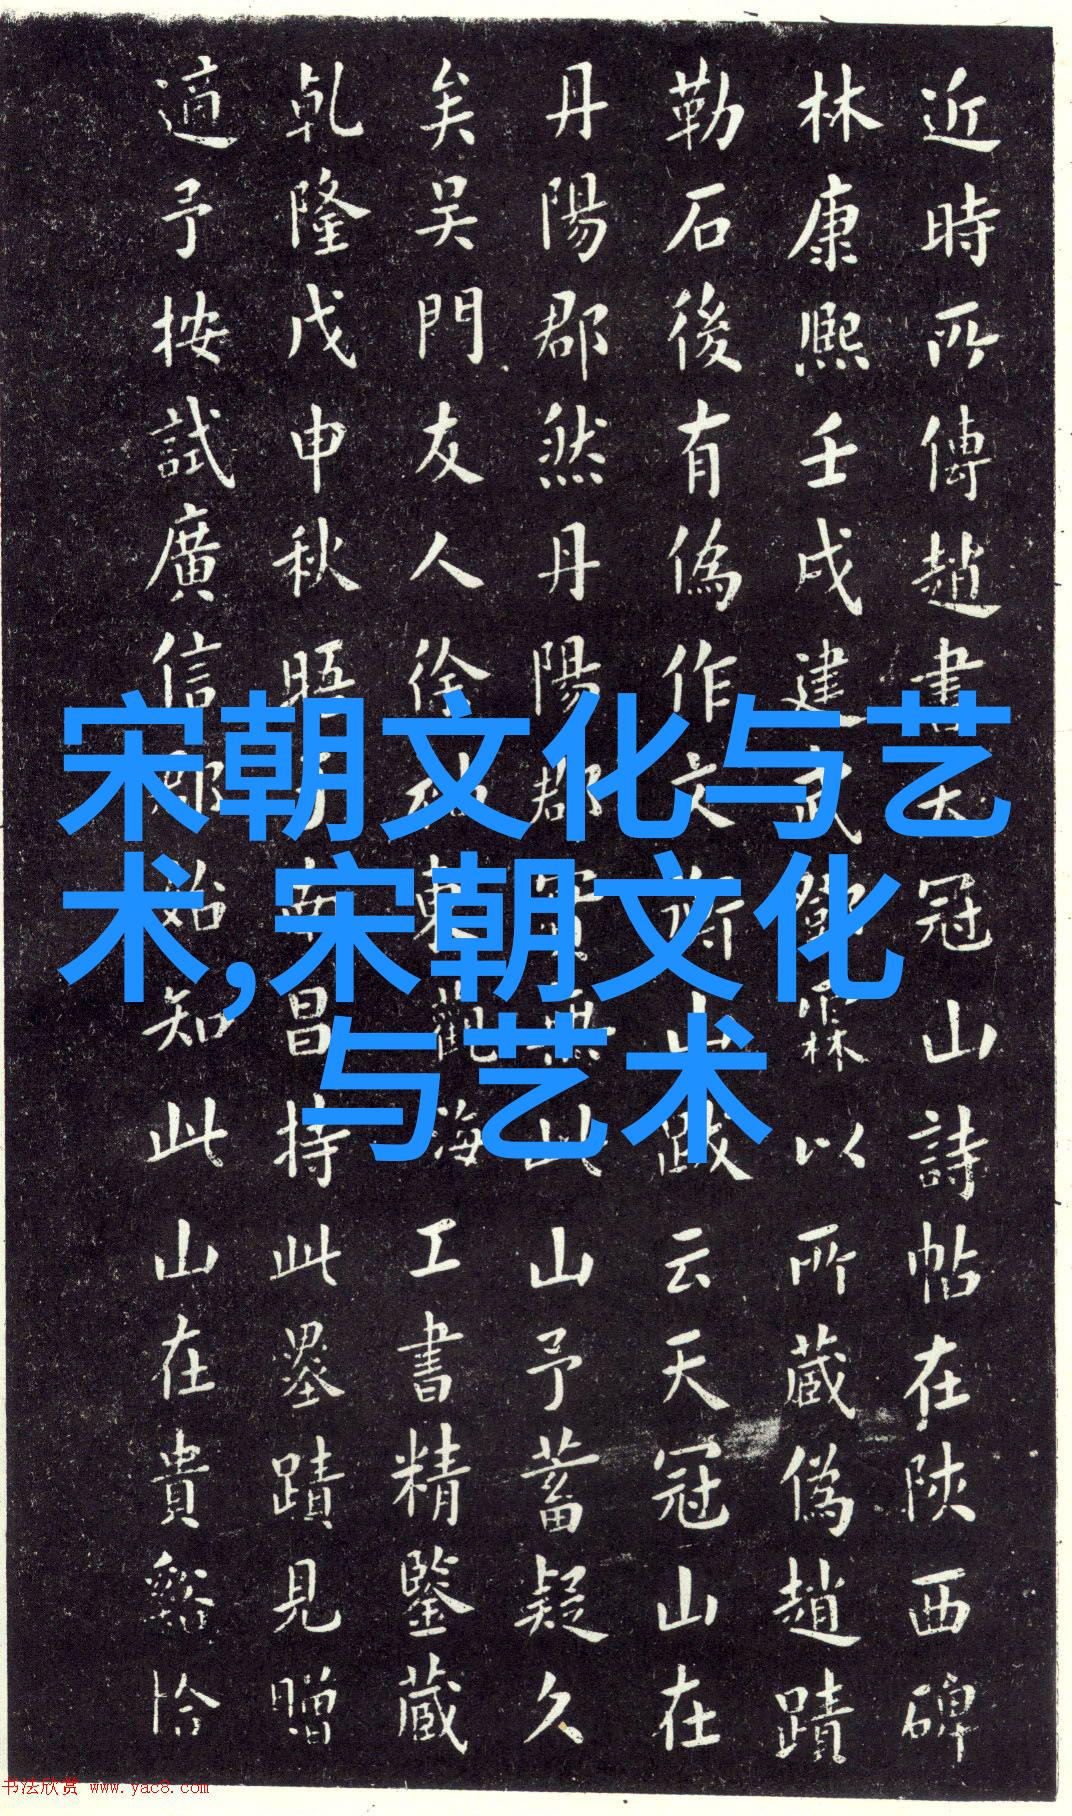 宋朝文化与艺
术,宋朝文化
与艺术
近時所傳趙書天冠山詩帖在陝西碑
林康熙壬戌建武鄧霖以所藏偽趙蹟
勒石後有偽作文衡山跋云天冠山在
丹陽郡然丹陽郡實無此山予蓄疑久
矣吴門友人徐東觀海工書精鑒藏
乹隆戊申秋晤于南昌持此墨蹟見贈
適予按試廣信郡始知此山在貴谿恰
书法欣赏 www.yac8.com